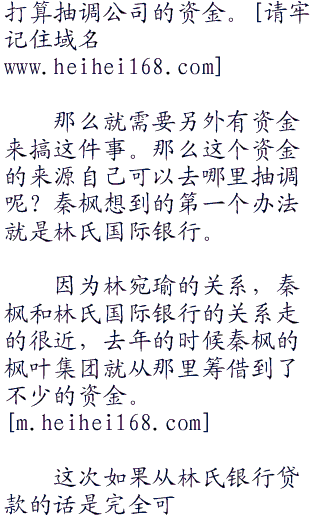 打算抽调公司的资金。[请牢
记住域名
www.heihei168.com]
那么就需要另外有资金
来搞这件事。那么这个资金
的来源自己可以去哪里抽调
呢？秦枫想到的第一个办法
就是林氏国际银行。
因为林宛瑜的关系，秦
枫和林氏国际银行的关系走
的很近，去年的时候秦枫的
枫叶集团就从那里筹借到了
不少的资金。
[m.heihei168.com]
这次如果从林氏银行贷
款的话是完全可